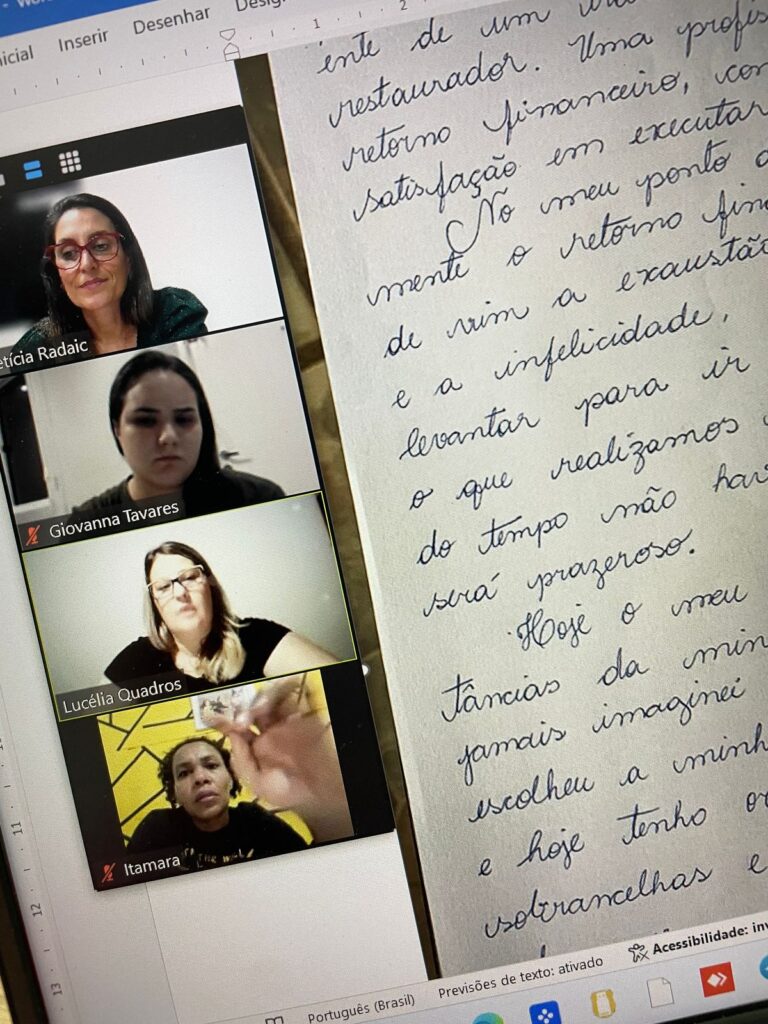 Inserir
Desenhar
1
2
ente de um
restaurador. Uma
retorno financeiro,
satisfação em executar
No meu ponto
mente o retorno
de vim a exaustão
e a infelicidade,
levantar para ir
o que realizamos
do tempo não
será prazeroso.
Hoje o meu
tâncias da
jamais imaginei
escolheu a
e hoje tenho
sobrancelhas e
Letícia Radaic
Giovanna Tavares
Lucélia Quadros
Itamara
11
12
13
Português (Brasil)
Previsões de texto: ativado
Acessibilidade: